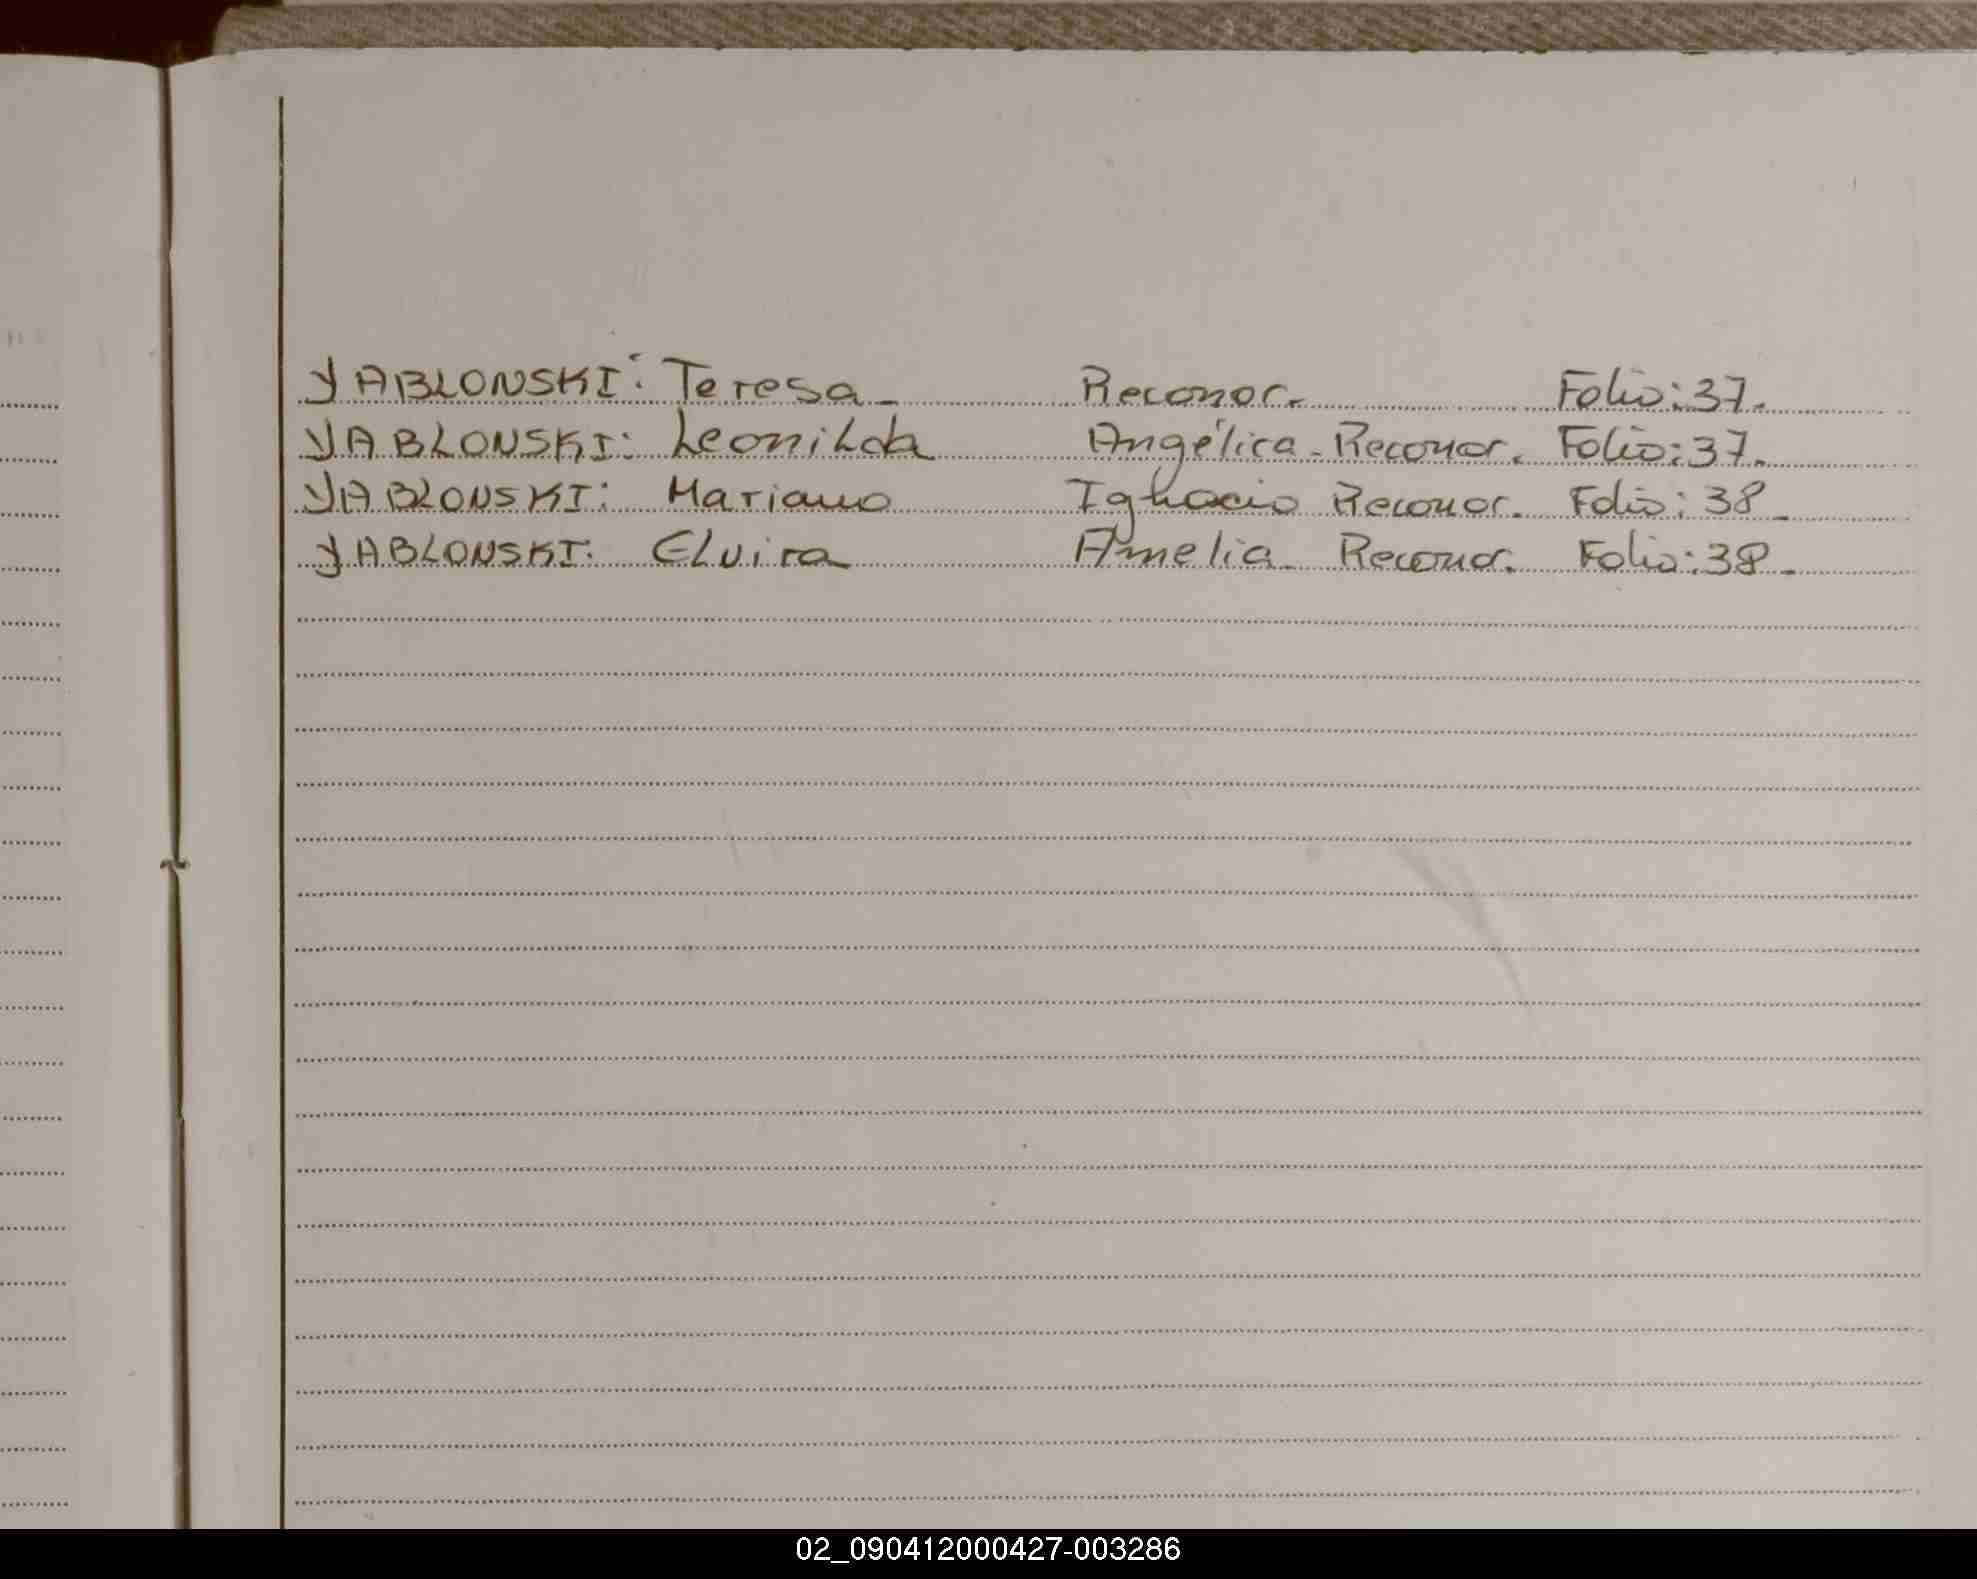 YABLONSKI: Teresa- Reconor. Folio: 37.
YABLONSKI: Leonilda Angélica - Reconor. Folio: 37.
YABLONSKI: Mariano Ignacio Reconor. Folio: 38-
YABLONSKI: Elvira Amelia- Reconor. Folio: 38-
02_090412000427-003286